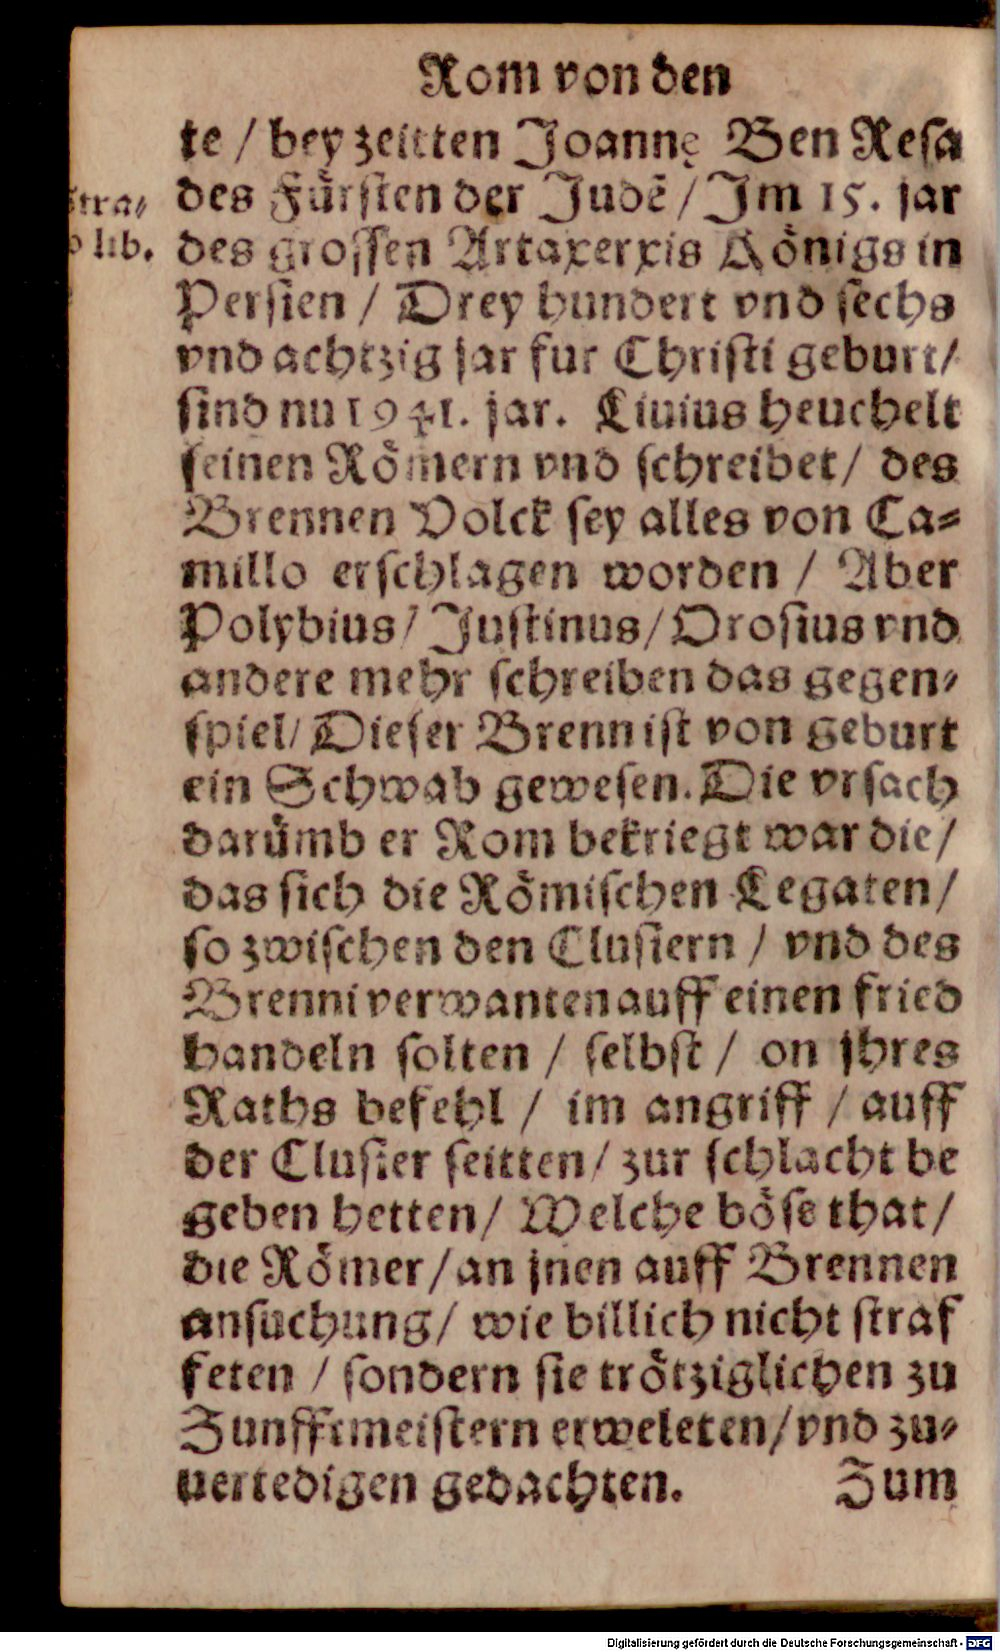 Rom von den
te / bey zeitten Joannę Ben Resa
des Fürsten der Judẽ / Im 15. jar
des grossen Artaxerxis Königs in
Persien / Drey hundert vnd sechs
vnd achtzig jar fur Christi geburt/
sind nu 1941. jar. Liuius heuchelt
seinen Römern vnd schreibet / des
Brennen Volck sey alles von Ca-
millo erschlagen worden / Aber
Polybius / Justinus / Orosius vnd
andere mehr schreiben das gegen-
spiel / Dieser Brenn ist von geburt
ein Schwab gewesen. Die vrsach
darümb er Rom bekriegt war die /
das sich die Römischen Legaten /
so zwischen den Clusiern / vnd des
Brenni verwanten auff einen fried
handeln solten / selbst / on jhres
Raths befehl / im angriff / auff
der Clusier seitten / zur schlacht be
geben hetten / Welche böse that /
die Römer / an jnen auff Brennen
ansuchung / wie billich nicht straf
feten / sondern sie trötziglichen zu
Zunfftmeistern erweleten / vnd zu-
uertedigen gedachten. Zum
Stra-
o lib.
Digitalisierung gefördert durch die Deutsche Forschungsgemeinschaft - DFG